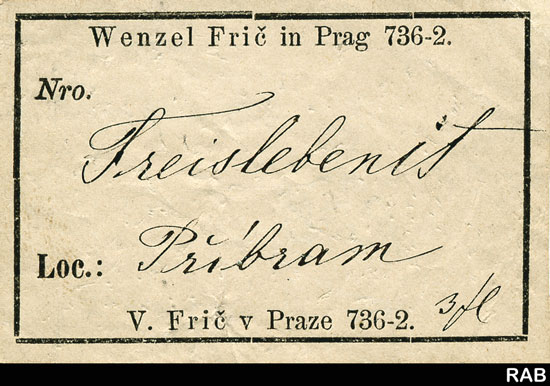 Wenzel Frič in Prag 736-2.
Nro.
Freislebenit
Loc.: Příbram
3 fl
V. Frič v Praze 736-2.
RAB